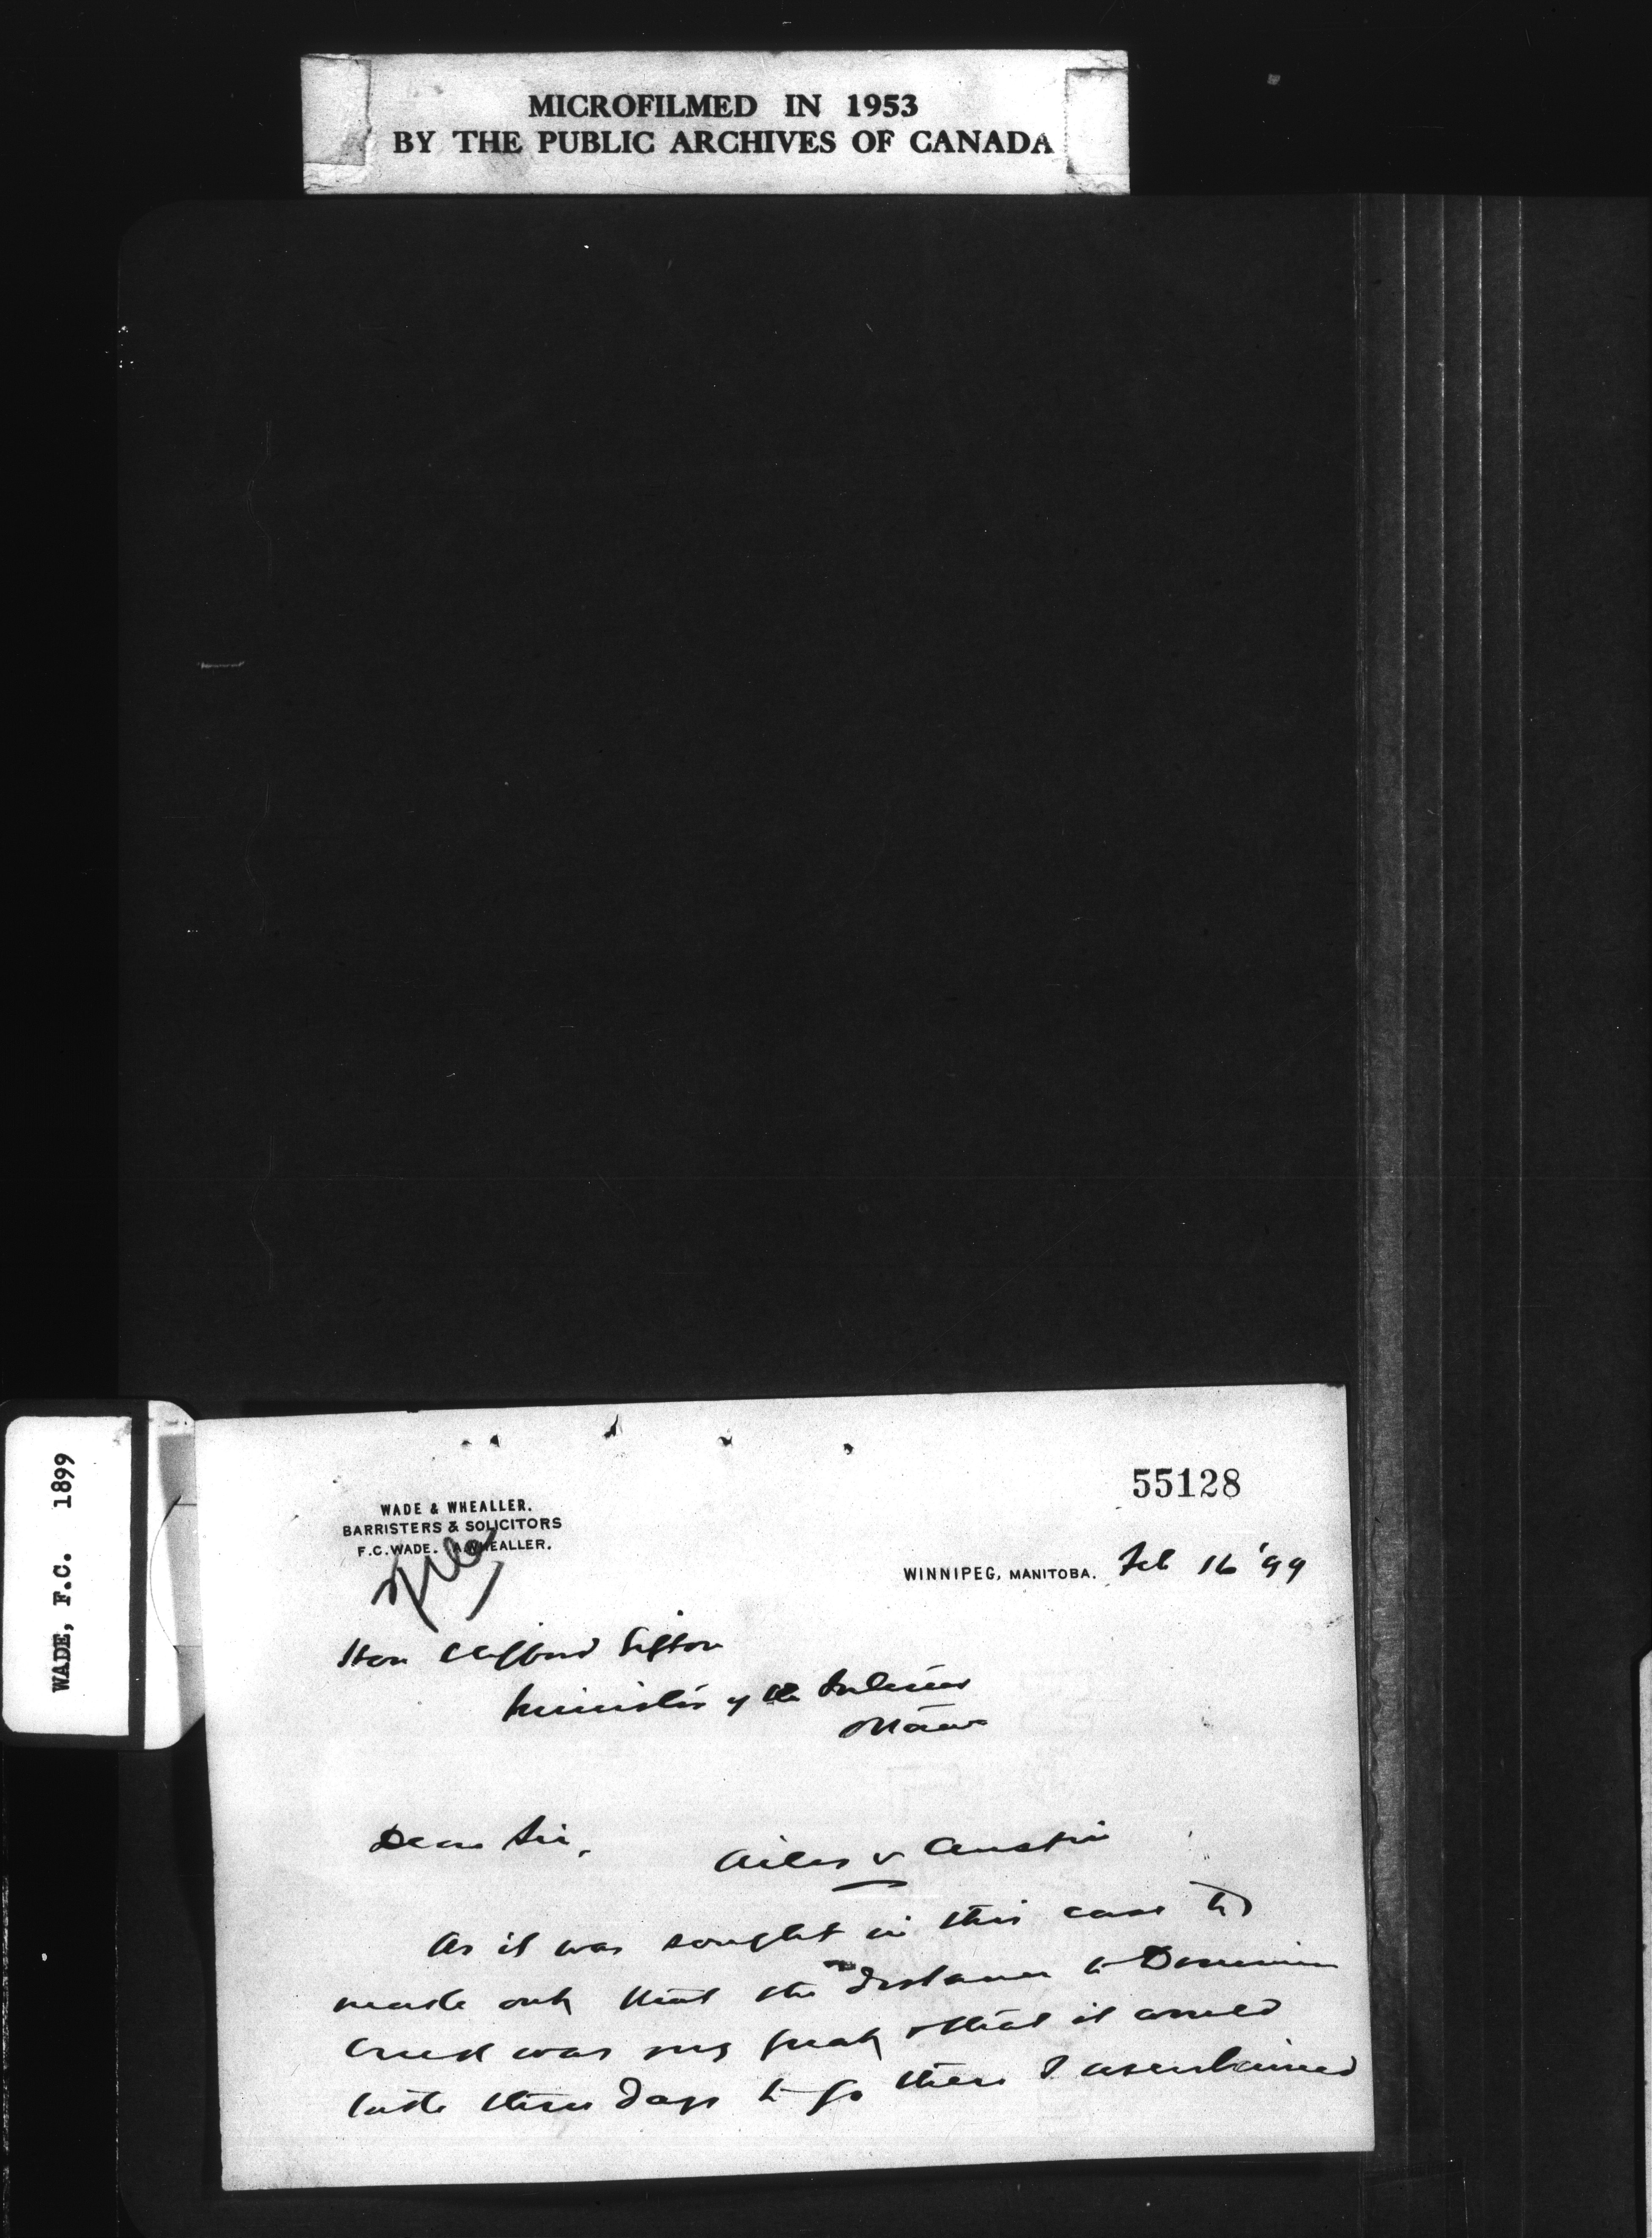 MICROFILMED IN 1953
BY THE PUBLIC ARCHIVES OF CANADA
WADE, F.C. 1899
55128
WADE & WHEALLER.
BARRISTERS & SOLICITORS
F.C. WADE. A. WHEALLER.
File
WINNIPEG, MANITOBA. Feb 16 '99
Hon Clifford Sifton
Minister of the Interior
Ottawa
Dear Sir,
Ailes v Austin
As it was sought in this case to
made out that the distance to Dominion
Creek was very great & that it would
take three days to go there I ascertained